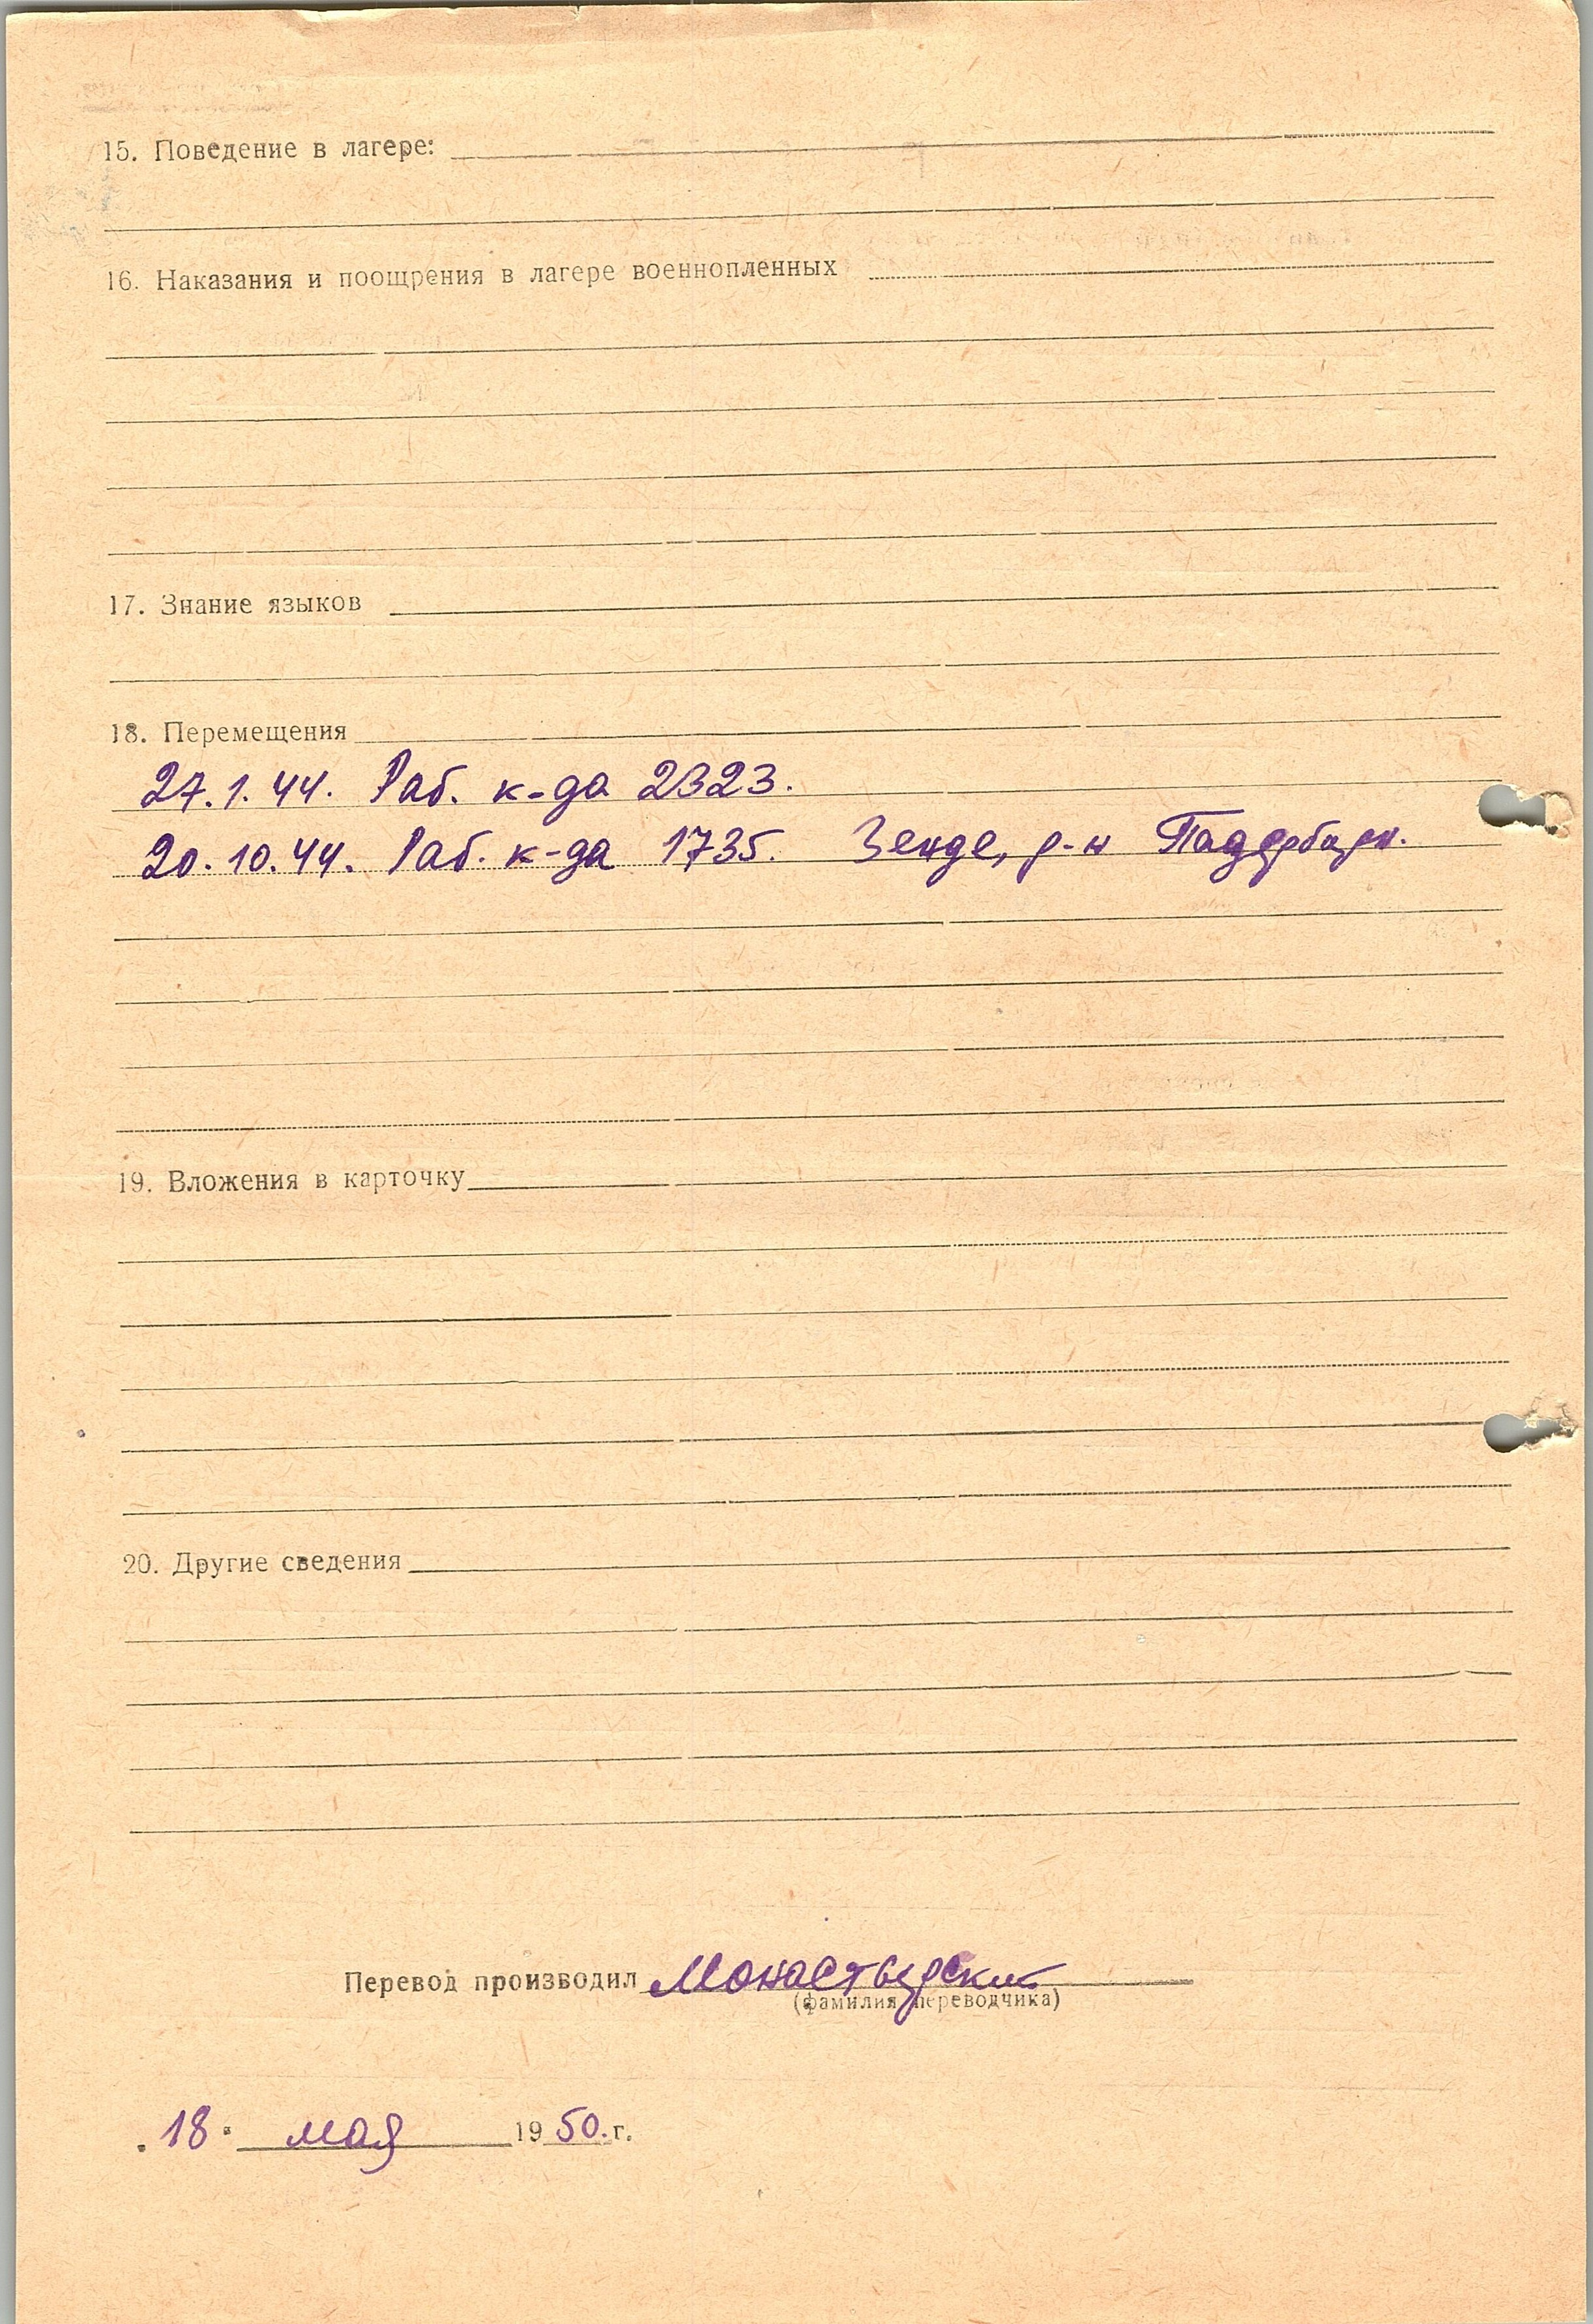 15. Поведение в лагере:
16. Наказания и поощрения в лагере военнопленных
17. Знание языков
18. Перемещения
27.1.44. Раб. к-да 2323.
20.10.44. Раб. к-да 1735. Зенде, р-н Падерборн.
19. Вложения в карточку
20. Другие сведения
Перевод производил Монастырский
(фамилия переводчика)
„18" мая 1950. г.